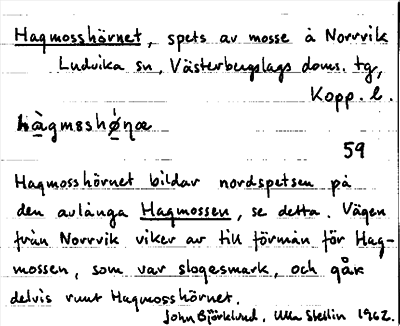 Hagmosshörnet, spets av mosse å Norrvik
Ludvika sn, Västerbergslags doms. tg,
Kopp. l.
hàgmɞshǿnæ
59
Hagmosshörnet bildar nordspetsen på
den avlånga Hagmossen, se detta. Vägen
från Norrvik viker av till förmån för Hag-
mossen, som var slogesmark, och går
delvis runt Hagmosshörnet.
John Björklund, Ulla Stellin 1962.